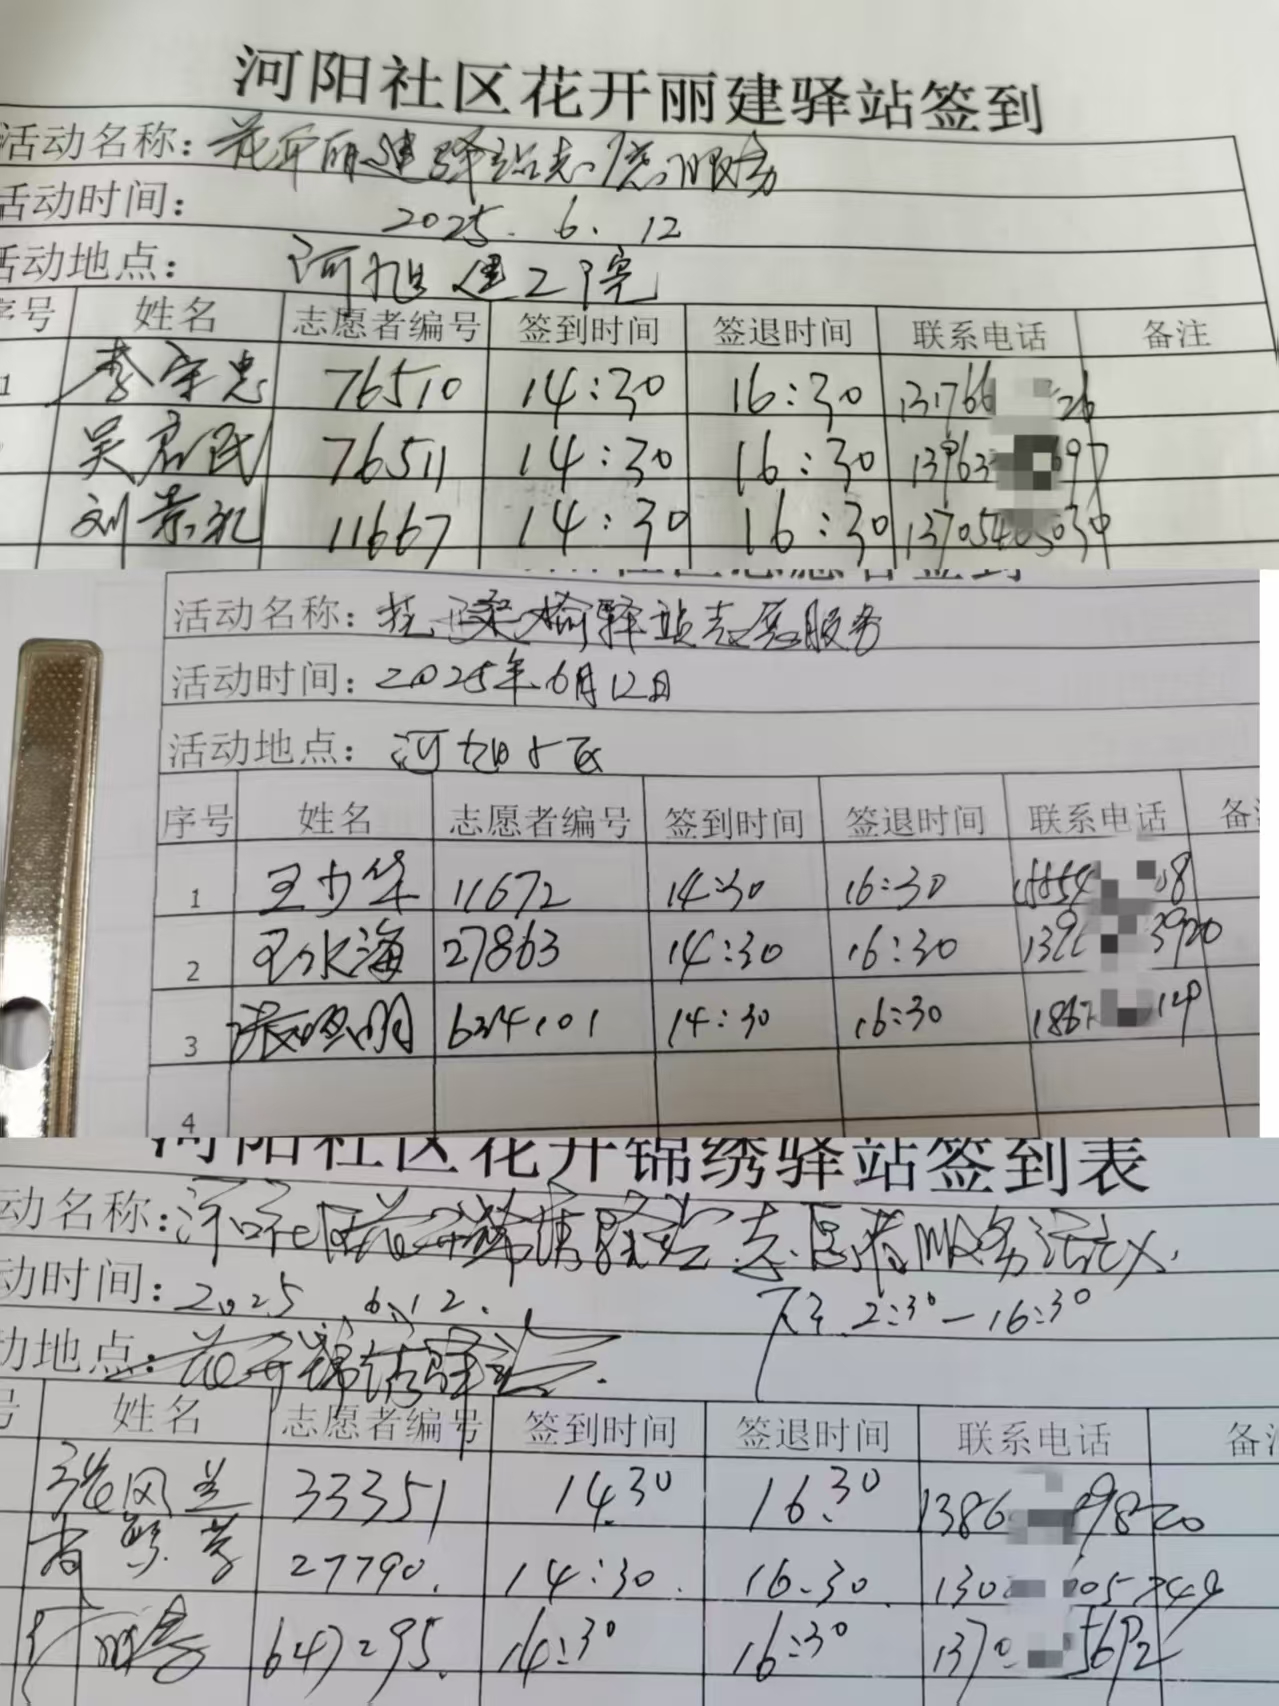 河阳社区花开丽建驿站签到
活动名称：花开丽建驿站志愿服务
活动时间：2025.6.12
活动地点：河旭建工1号
序号 姓名 志愿者编号 签到时间 签退时间 联系电话 备注
1 李守忠 76510 14:30 16:30 131766 26
吴启民 76511 14:30 16:30 13963 697
刘崇礼 11667 14:30 16:30 137054 5030
活动名称：桑榆驿站志愿服务
活动时间：2025年6月12日
活动地点：河旭小区
序号 姓名 志愿者编号 签到时间 签退时间 联系电话 备注
1 王少华 11672 14:30 16:30 15554 08
2 王永海 27863 14:30 16:30 139 3920
3 明 624101 14:30 16:30 1867 119
4
河阳社区花开锦绣驿站签到表
动名称：河阳社区花开锦绣驿站志愿者服务活动.
动时间：2025.6.12. 下午2:30-16:30
动地点：花开锦绣驿站.
号 姓名 志愿者编号 签到时间 签退时间 联系电话 备注
张凤兰 33351 14:30 16:30 1386 9820
27790. 14:30. 16.30 130 05744
647295. 14:30 16:30 1370 5692